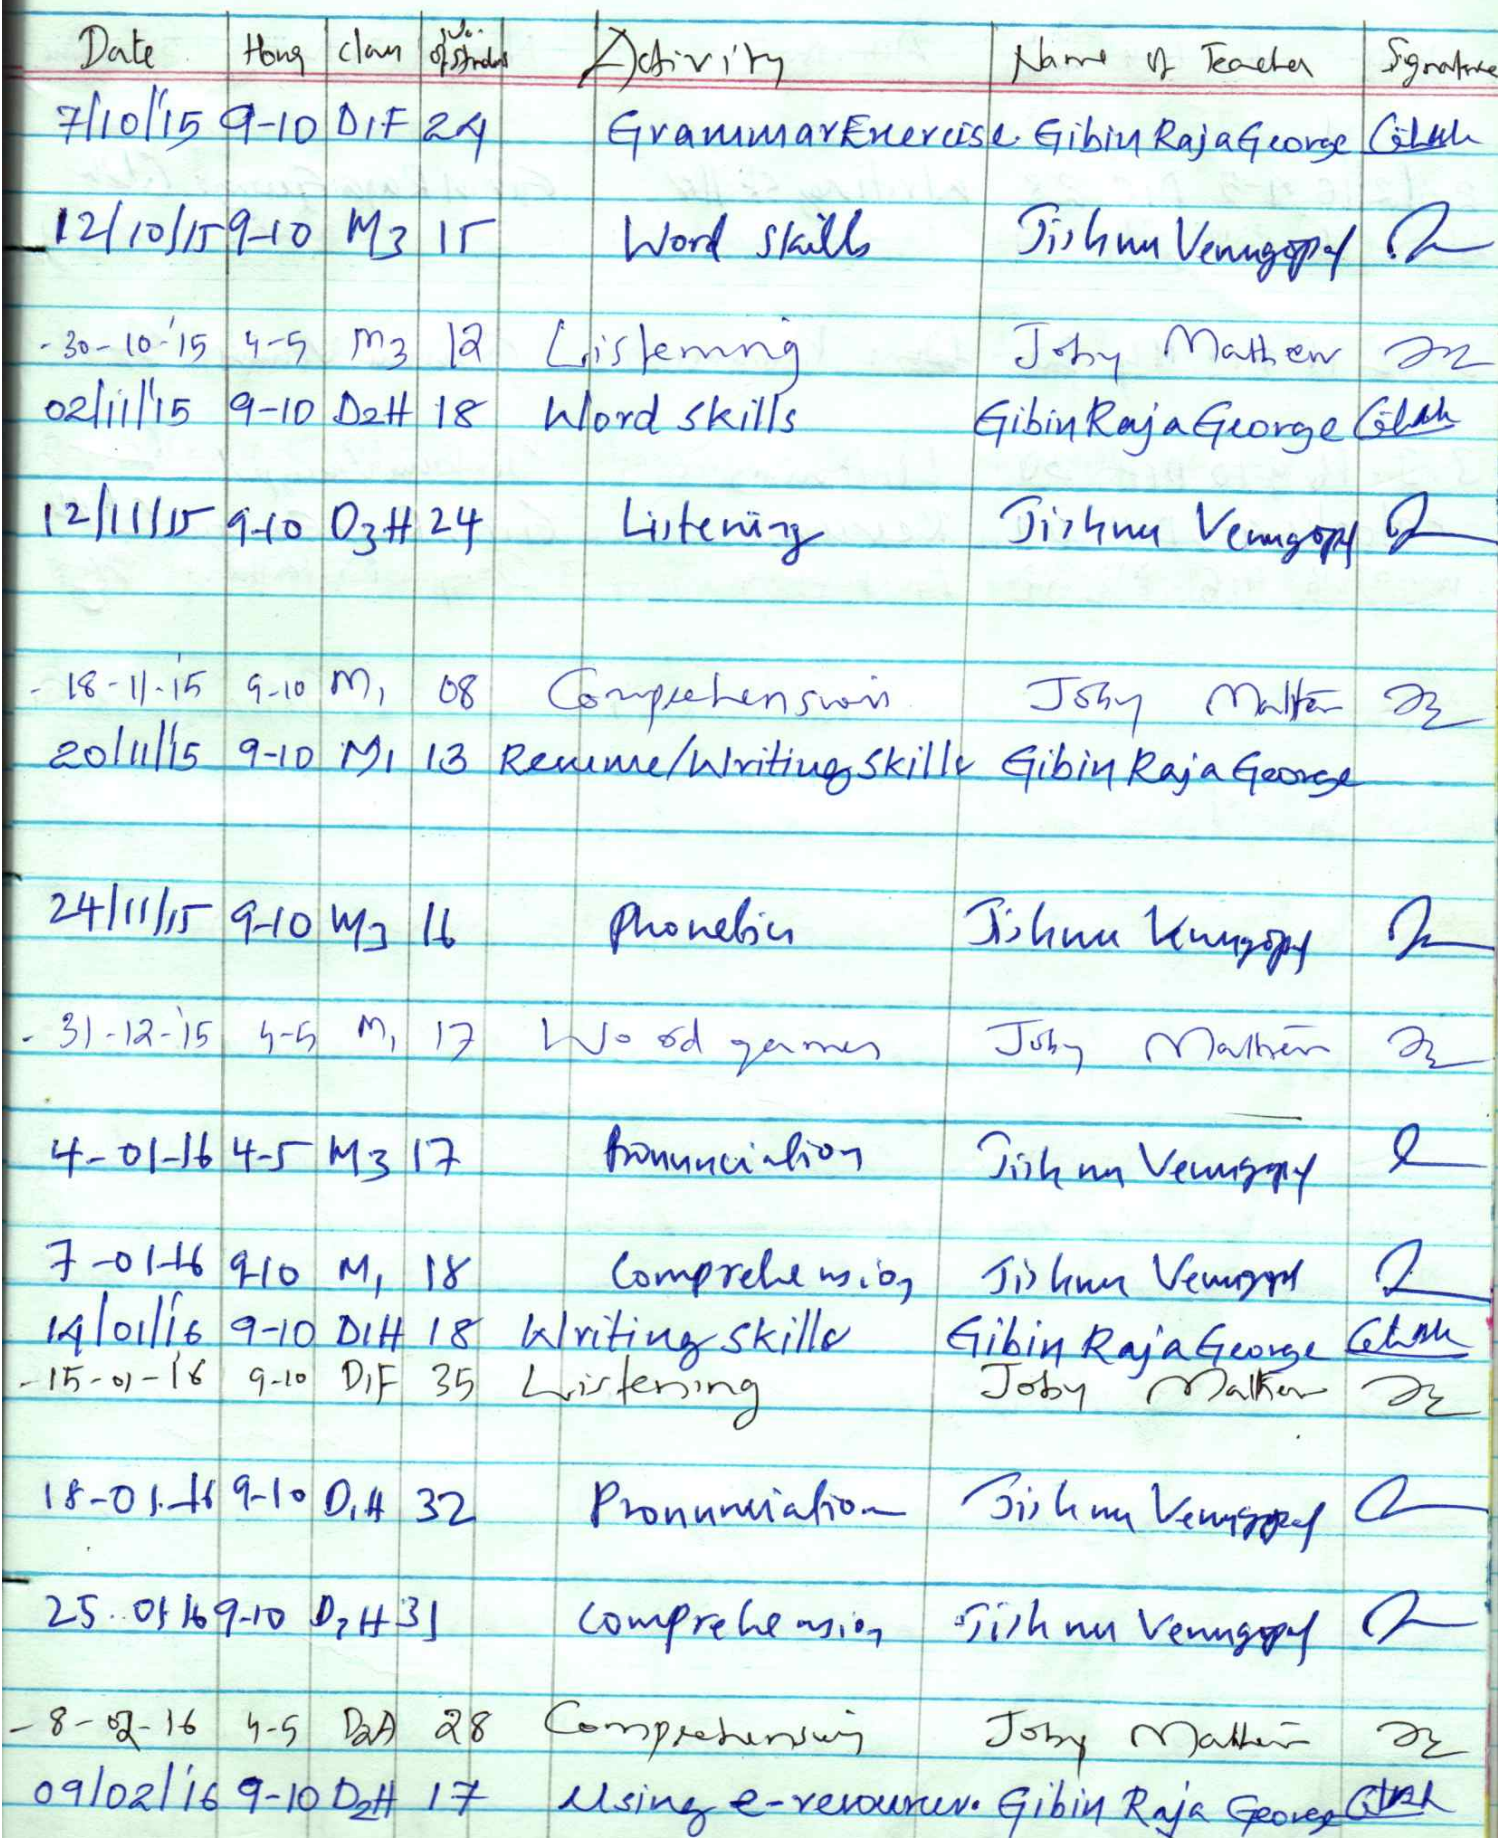 Date Hour Class No. of Students Activity Name of Teacher Signature
7/10/'15 9-10 D1F 24 Grammar Exercise. Gibin Raja George
12/10/15 9-10 M3 15 Word skills Jishnu Venugopal
-30-10-'15 4-5 M3 12 Listening Joby Mathew
02/11/'15 9-10 D2H 18 Word skills Gibin Raja George
12/11/15 9-10 D3H 24 Listening Jishnu Venugopal
- 18-11-'15 9-10 M1 08 Comprehension Joby Mathew
20/11/'15 9-10 M1 13 Resume/Writing Skills Gibin Raja George
24/11/15 9-10 M3 16 Phonetics Jishnu Venugopal
- 31-12-'15 4-5 M1 17 Word games Joby Mathew
4-01-16 4-5 M3 17 Pronunciation Jishnu Venugopal
7-01-16 9-10 M1 18 Comprehension Jishnu Venugopal
14/01/'16 9-10 D1H 18 Writing skills Gibin Raja George
-15-01-'16 9-10 D1F 35 Listening Joby Mathew
18-01-16 9-10 D1H 32 Pronunciation Jishnu Venugopal
25.01.16 9-10 D2H 31 Comprehension Jishnu Venugopal
-8-02-16 4-5 28 Comprehension Joby Mathew
09/02/'16 9-10 D2H 17 Using e-resources. Gibin Raja George